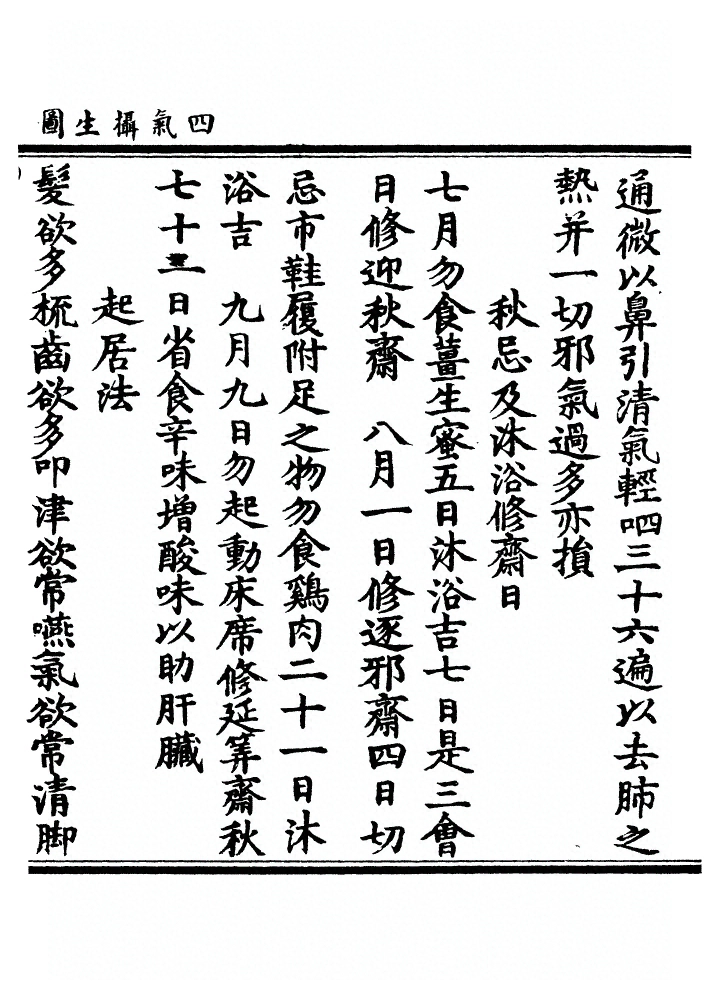 四氣攝生圖
通微以鼻引清氣輕呬三十六遍以去肺之
熱并一切邪氣過多亦損
秋忌及沐浴修齋日
七月勿食薑生蜜五日沐浴吉七日是三會
日修迎秋齋 八月一日修逐邪齋四日切
忌市鞋履附足之物勿食鷄肉二十一日沐
浴吉 九月九日勿起動床席修延筭齋秋
七十二日省食辛味增酸味以助肝臟
起居法
髮欲多梳齒欲多叩津欲常嚥氣欲常清脚